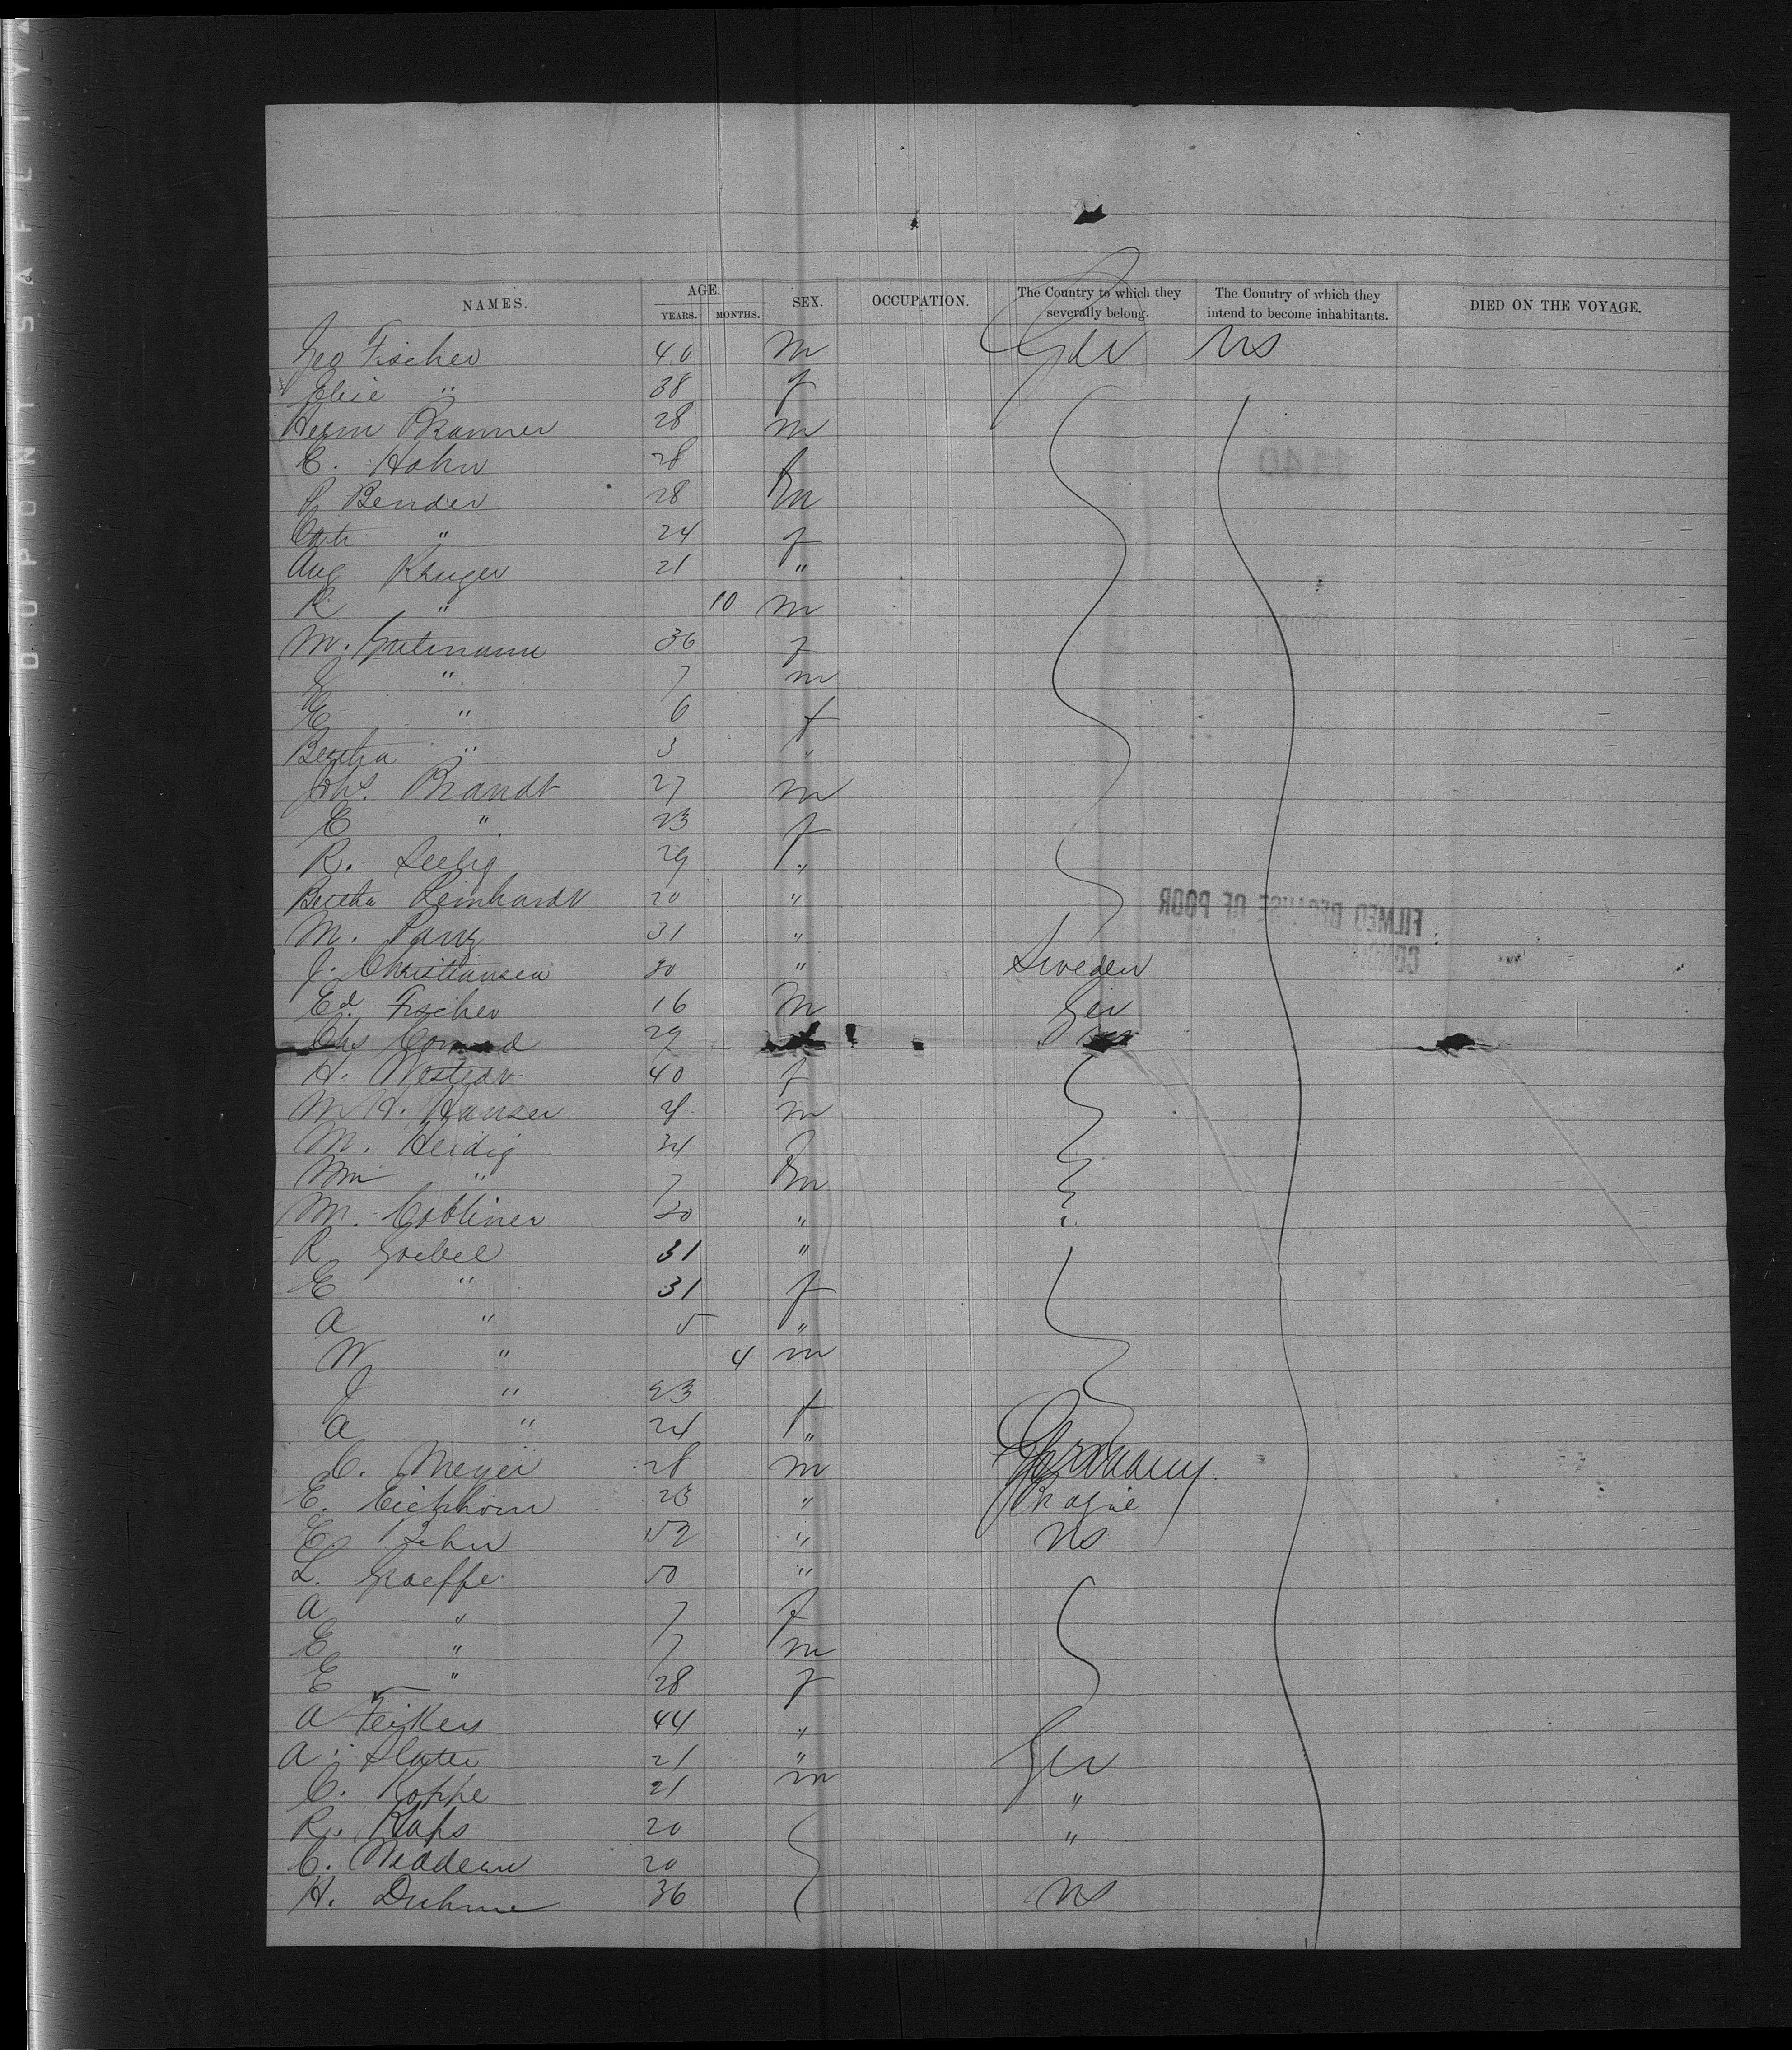 NAMES. AGE. YEARS. MONTHS. SEX. OCCUPATION. The Country to which they severally belong. The Country of which they intend to become inhabitants. DIED ON THE VOYAGE.
Geo Fischer 40 m Ger US
Elise " 38 f
Herm Branner 28 m
C. Hahn 28
Bender 28 m
Cath " 24 f
Aug Kruger 21 "
R " 10 m
M. Gutmann 36 f
" 7 m
E " 6 f
Bertha " 3 "
Johs. Brandt 27 m
E " 23 f
R. Seelig 29 "
Bertha Reinhardt 20 "
M. 31 "
J. Christiansen 30 " Sweden
Ed. Fischer 16 m Ger
Chs Conrad 29
H. 40 f
M H. Hansen 28 m
M. Heidig 34 f
Wm " 7 m
M. Cobliner 20 "
R Goebel 31 "
E " 31 f
A " 5 "
W " 4 m
J " 23 f
A " 24 "
C. Meyer 28 m Germany
E. Eichhorn 23 "
E 52 " US
L. Graeffe 50 "
A " 7 f
E " 7 m
E " 28 f
A 44 "
A. 21 " Ger
C. Koppe 21 m "
R. Klaps 20 "
C. 20
H. Duhme 36 US
1140
FILMED BECAUSE OF POOR
DUPONT SAFETY